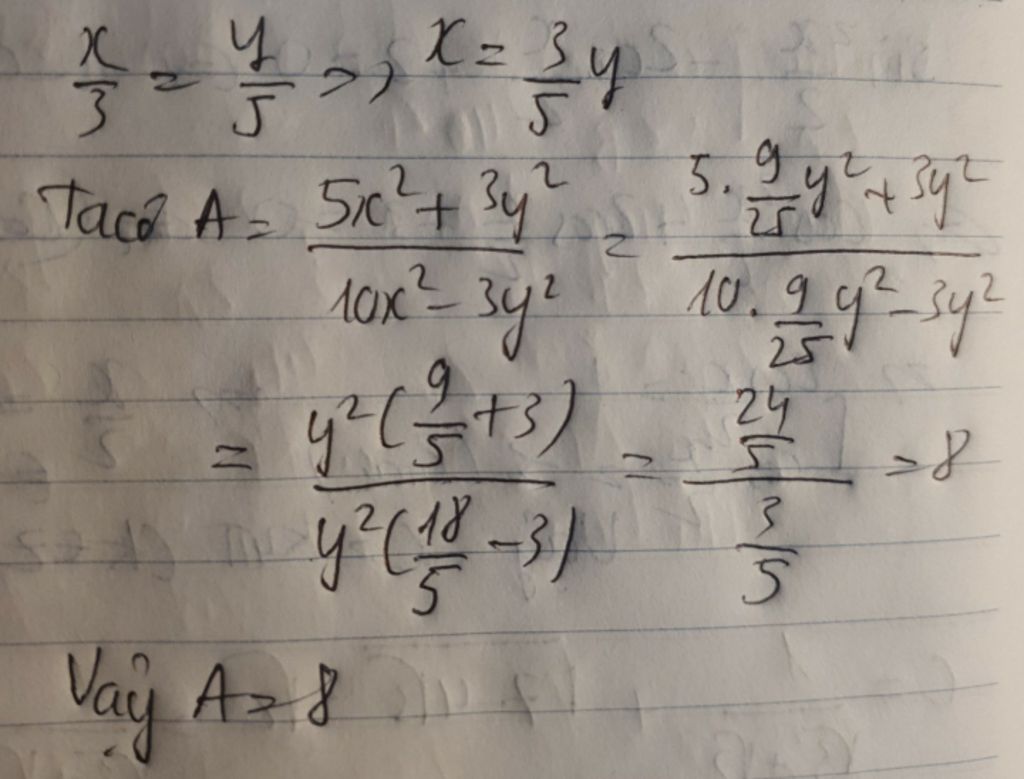 x/3 = y/5 => x = 3/5 y
Ta có A = (5x² + 3y²)/(10x² - 3y²) = (5 . 9/25 y² + 3y²)/(10 . 9/25 y² - 3y²)
= (y²(9/5 + 3))/(y²(18/5 - 3)) = (24/5)/(3/5) = 8
Vậy A = 8